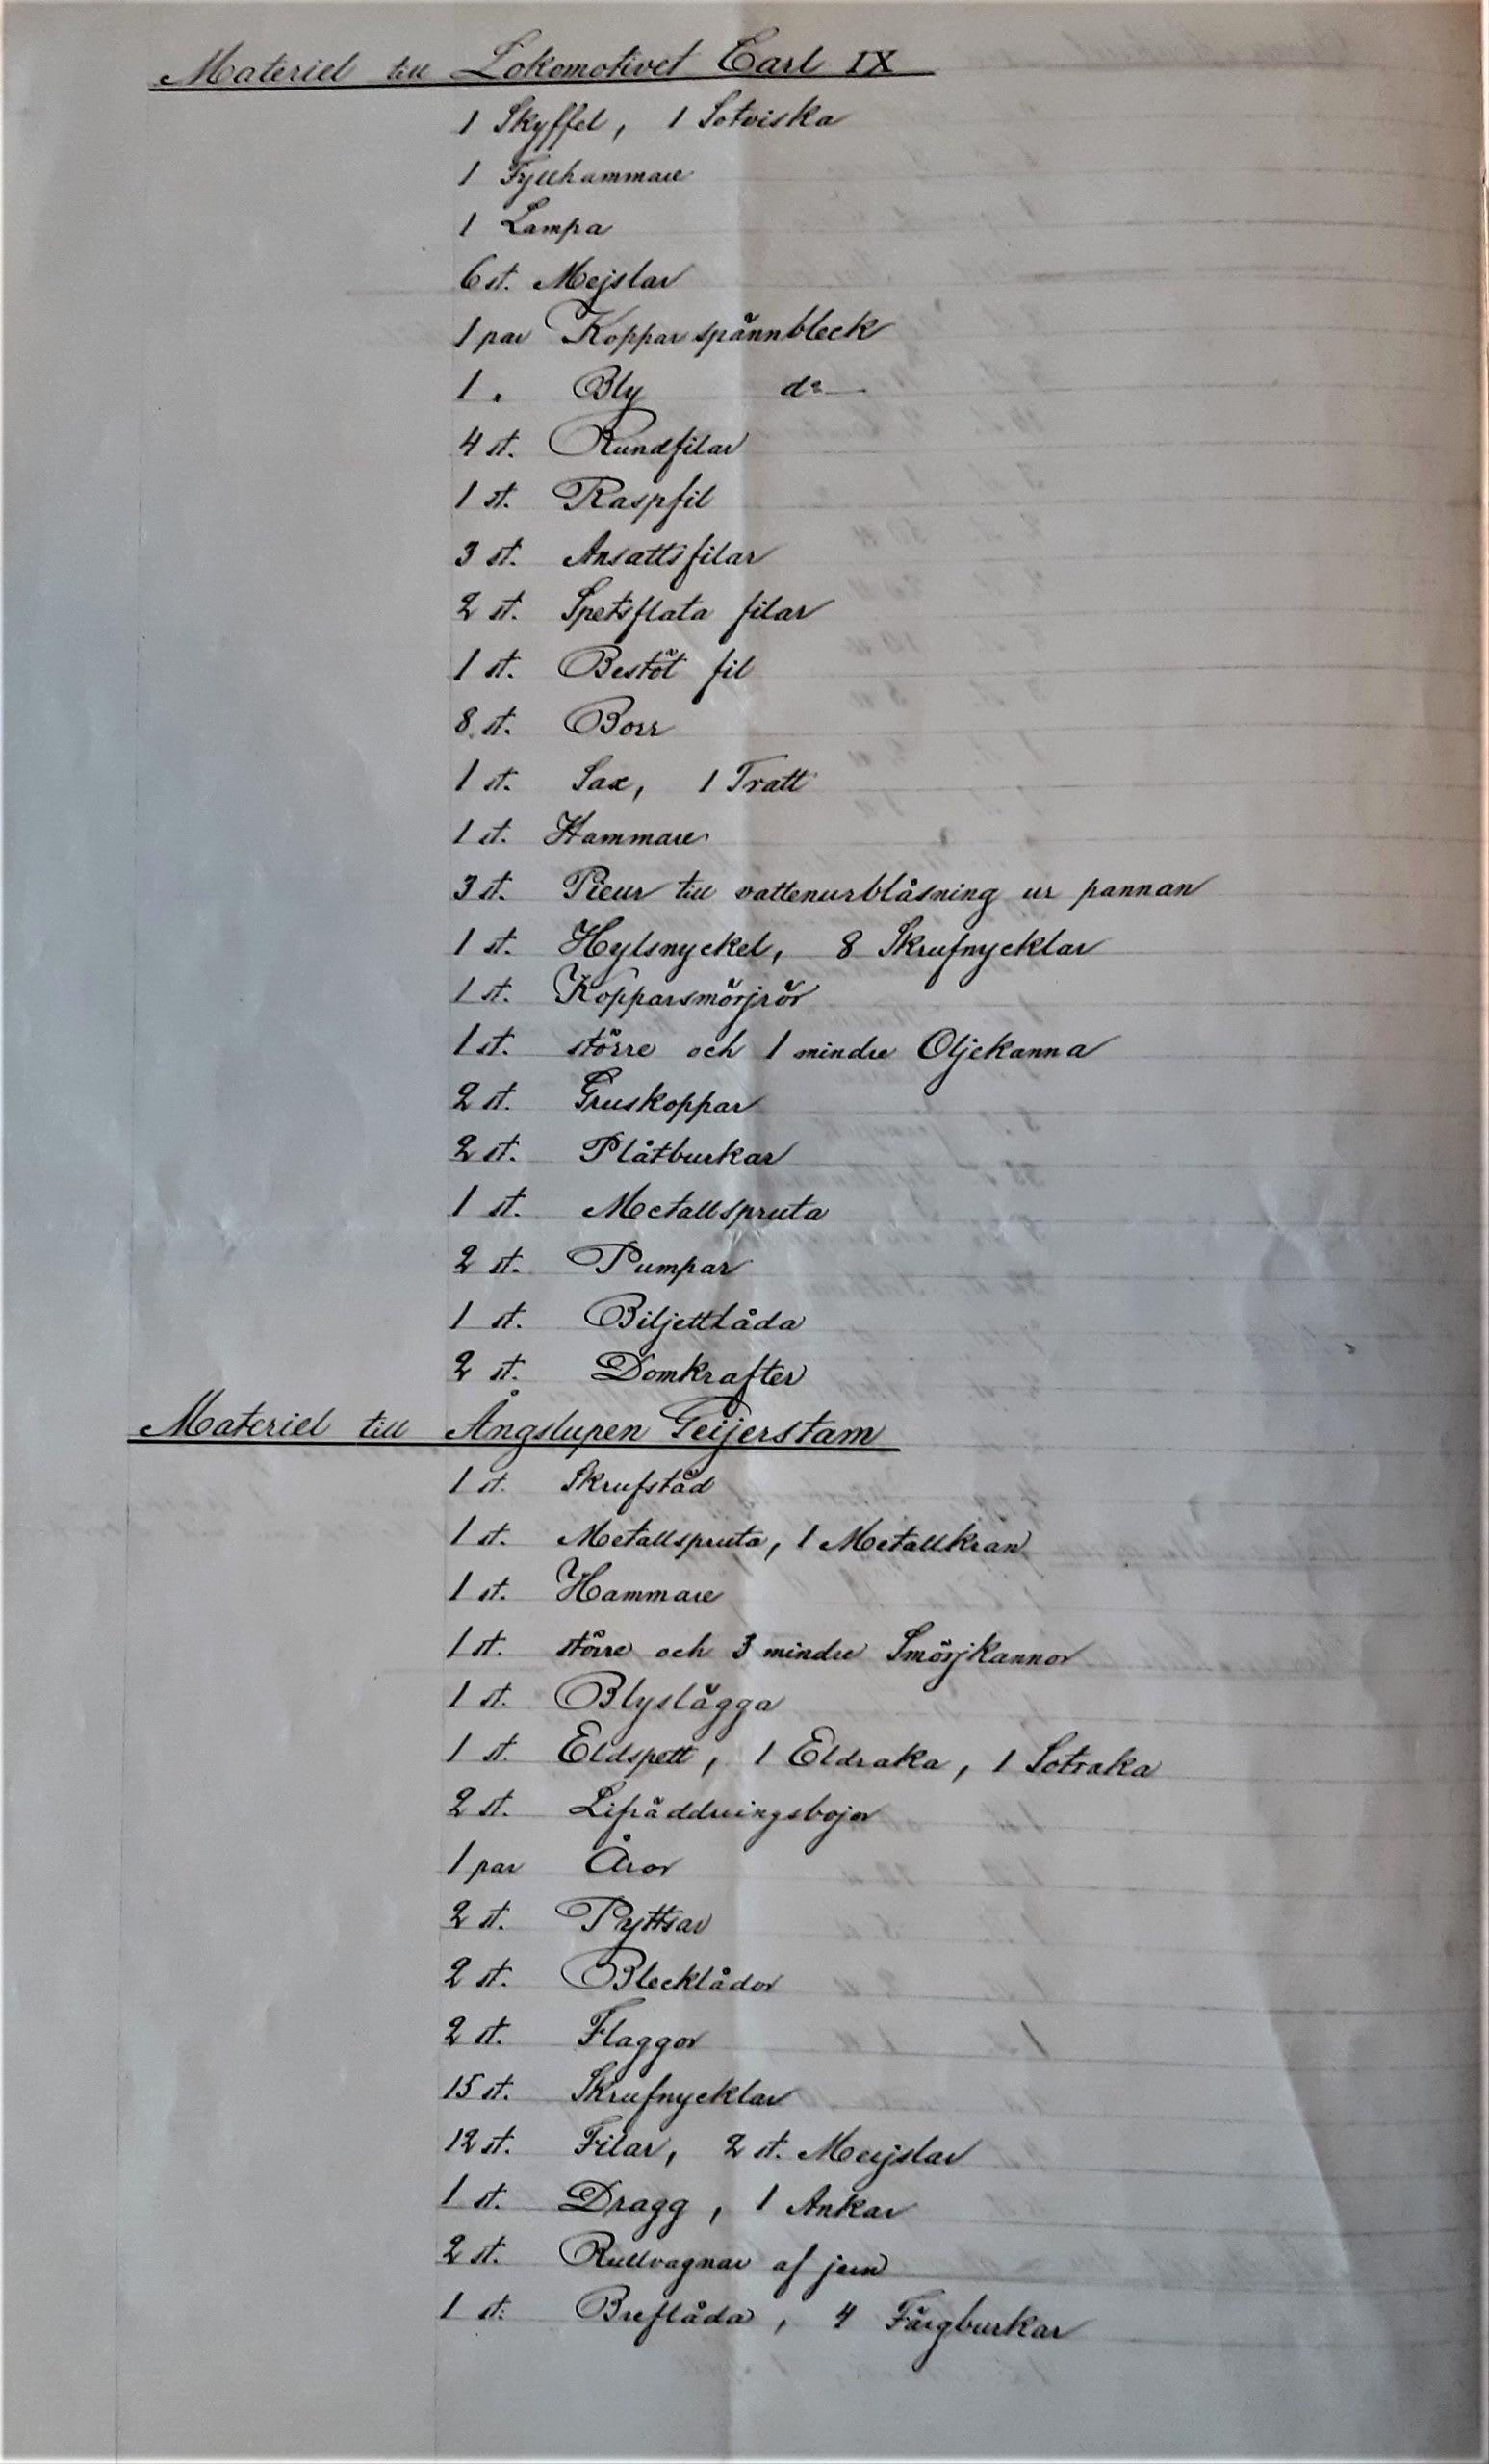 Materiel till Lokomotivet Carl IX
1 Skyffel, 1 Sotviska
1 Fyllhammare
1 Lampa
6 st. Mejslar
1 par Koppar spännbleck
1 " Bly do
4 st. Rundfilar
1 st. Raspfil
3 st. Ansattsfilar
2 st. Spetsflata filar
1 st. Bestöt fil
8 st. Borr
1 st. Sax, 1 Tratt
1 st. Hammare
3 st. till vattenurblåsning ur pannan
1 st. Hylsnyckel, 8 Skrufnycklar
1 st. Kopparsmörjrör
1 st. större och 1 mindre Oljekanna
2 st. Gruskoppar
2 st. Plåtburkar
1 st. Metallspruta
2 st. Pumpar
1 st. Biljettlåda
2 st. Domkrafter
Materiel till Ångslupen Geijerstam
1 st. Skrufståd
1 st. Metallspruta, 1 Metallkran
1 st. Hammare
1 st. större och 3 mindre Smörjkannor
1 st. Blyslägga
1 st. Eldspett, 1 Eldraka, 1 Sotraka
2 st. Lifräddningsbojor
1 par Åror
2 st. Pyttsar
2 st. Blecklådor
2 st. Flaggor
15 st. Skrufnycklar
12 st. Filar, 2 st. Mejslar
1 st. Dragg, 1 Ankar
2 st. Rullvagnar af jern
1 st. Breflåda, 4 Färgburkar